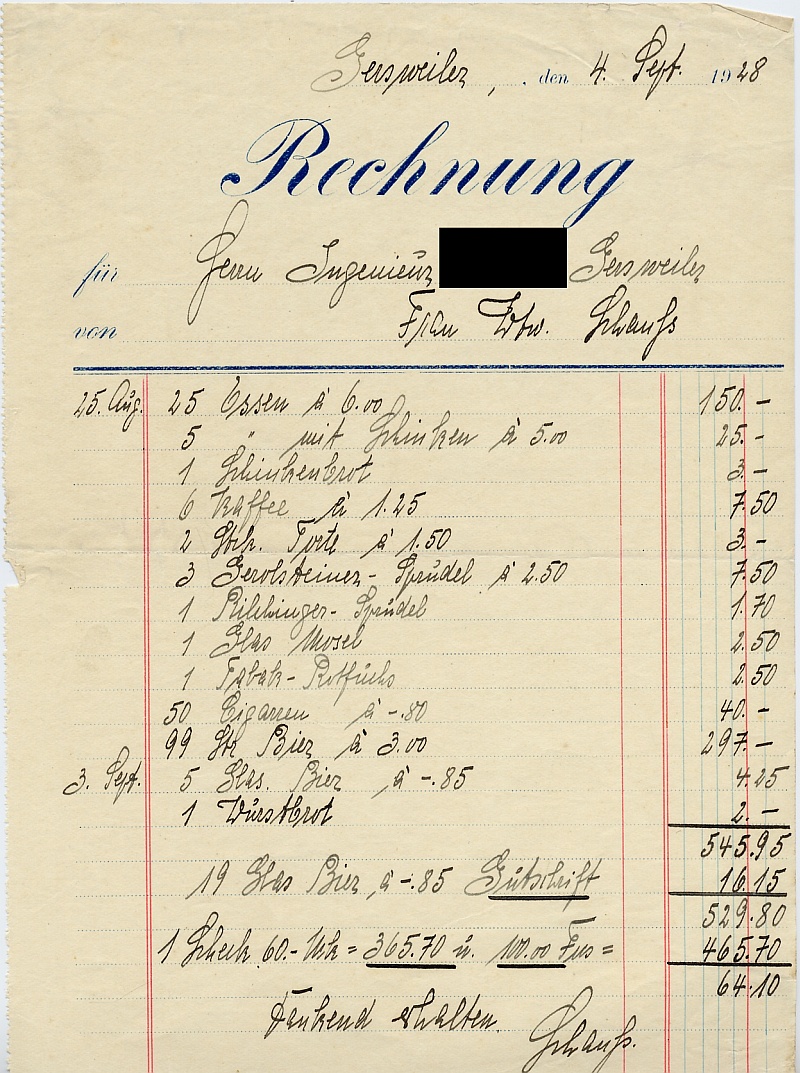 Gersweiler, den 4. Sept. 1928
Rechnung
für Herrn Ingenieur Gersweiler
von Frau Wtw. Schauss
25. Aug. 25 Essen à 6.00 150.-
5 " mit Schinken à 5.00 25.-
1 Schinkenbrot 3.-
6 Kaffee à 1.25 7.50
2 Stck. Torte à 1.50 3.-
3 Gerolsteiner-Sprudel à 2.50 7.50
1 Rilchinger-Sprudel 1.70
1 Glas Mosel 2.50
1 Tabak-Rotfuchs 2.50
50 Cigarren à -.80 40.-
99 Ltr Bier à 3.00 297.-
3. Sept. 5 Glas. Bier à -.85 4.25
1 Wurstbrot 2.-
545.95
19 Glas Bier à -.85 Gutschrift 16.15
529.80
1 Scheck 60.- Mk = 365.70 u. 100.00 Frs = 465.70
64.10
Dankend erhalten.
Schauss.